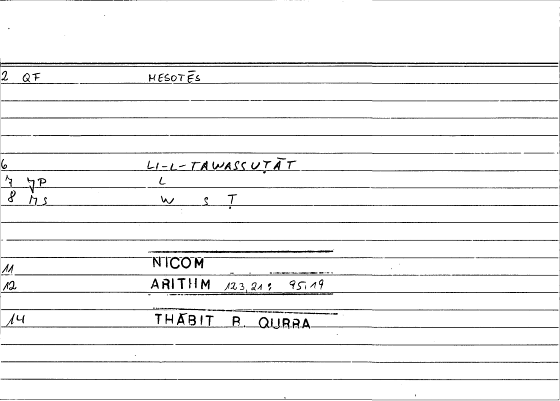 2 QF MESOTĒS
6 LI-L-TAWASSUṬĀT
7 7P L
8 MS W S Ṭ
11 NICOM
12 ARITHM 123,21; 95,19
14 THĀBIT B. QURRA